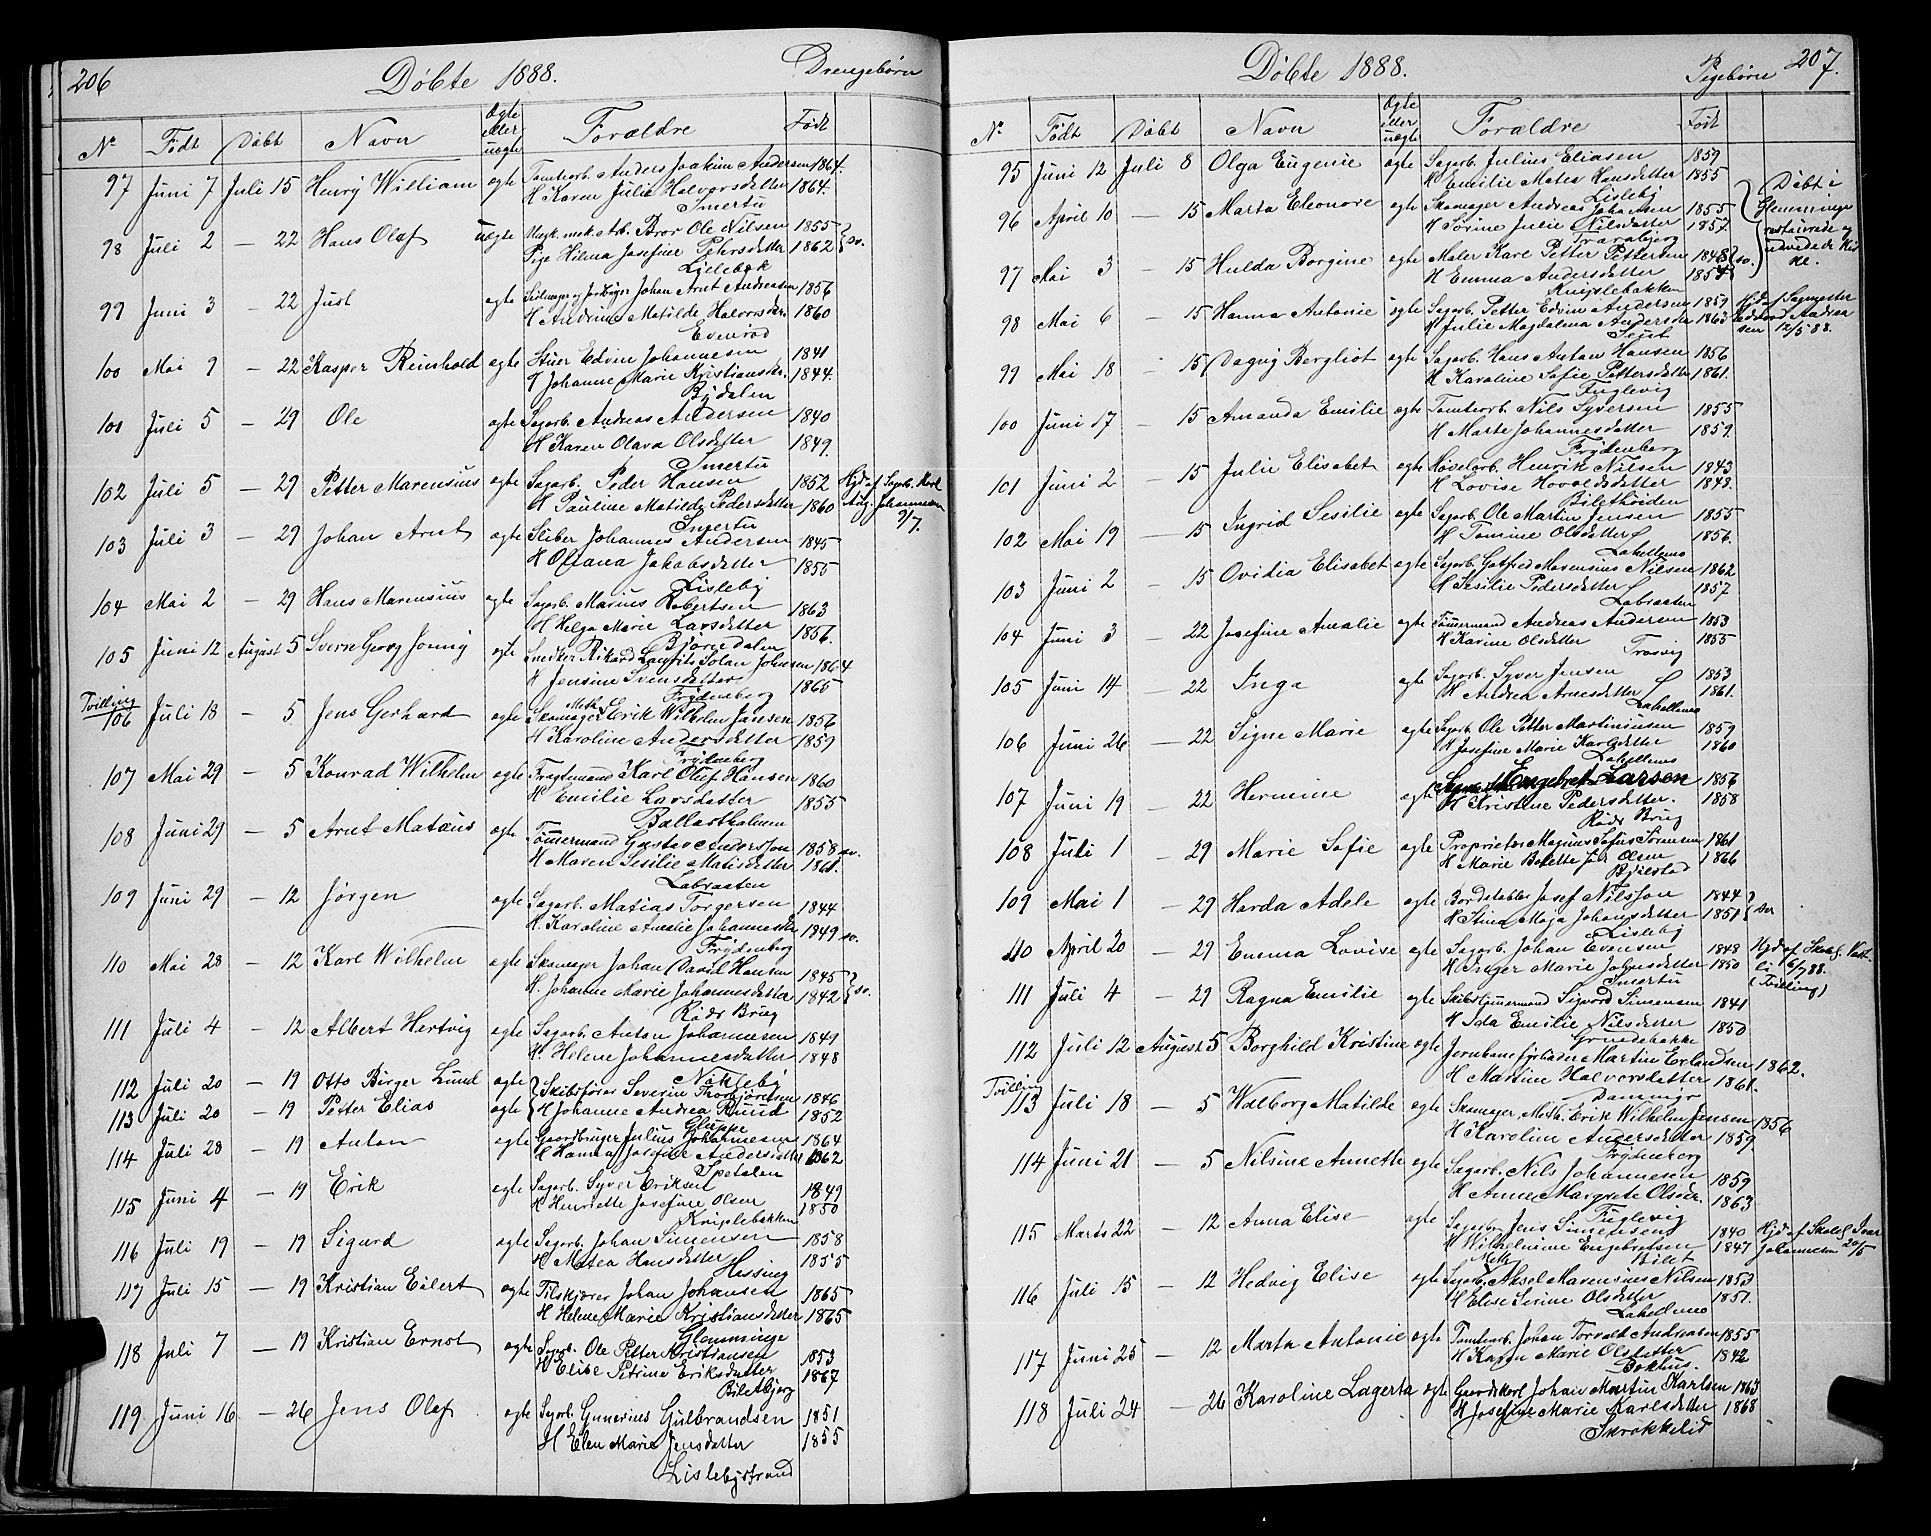 206 Døbte 1888. Drengebørn
No Født Døbt Navn Ægte eller uægte Forældre Født
97 Juni 7 Juli 15 Henry William ægte Tomtearb. Anders Joakim Andersen 1864.
H Karen Julie Halvorsdatter 1864.
Smertu
98 Juli 2 — 22 Hans Olaf uægte Ungk. mek. Arb. Bror Ole Nilsen 1855 } sv.
Pige Hilma Josefine Pehrsdatter 1862
Lislebæk
99 Juni 3 — 22 Just ægte Seilmager og Jordbruger Johan Arnt Andreasen 1856
H Andrine Matilde Halvorsdtr. 1860
Evenrød
100 Mai 9 — 22 Kasper Reinhold ægte Stuer Edvin Johannesen 1841
H Johanne Marie Kristiansdtr. 1844.
Bydalen
101 Juli 5 — 29 Ole ægte Sagarb. Andreas Andersen 1840
H Karen Olava Olsdatter 1849.
Smertu
102 Juli 5 — 29 Petter Marensius ægte Sagarb. Peder Hansen 1852 Hjd af Sagarb. Karl
H Pauline Matilde Pedersdatter 1860 Aug. Johannesen
Smertu 9/7.
103 Juli 3 — 29 Johan Arnt ægte Sliber Johannes Andersen 1845
H Oliana Jakobsdatter 1855
Lisleby
104 Mai 2 — 29 Hans Marensius ægte Sagarb. Marius Robertsen 1863
H Helga Marie Larsdatter 1856.
Bjørnedalen
105 Juni 12 August 5 Sverre Georg Jonny ægte Snedker Rikard Laurits Solan Johnsen 1864
H Jensine Svensdatter 1865
Frydenberg
Tvilling
106 Juli 18 — 5 Jens Gerhard ægte Skomager Meth. Erik Wilhelm Jansen 1856
H Karoline Andersdatter 1859
Frydenberg
107 Mai 29 — 5 Konrad Wilhelm ægte Fragtemand Karl Oluf Hansen 1860
H Emilie Larsdatter 1855
Ballastholmen
108 Juni 29 — 5 Arnt Mataus ægte Tømmermand Gustav Andersson 1858 sv.
H Maren Sesilie Matisdatter 1861.
Labraaten
109 Juni 29 — 12 Jørgen ægte Sagarb. Matias Torgersen 1844
H. Karoline Amalie Johannesdtr 1849 sv.
Frydenberg
110 Mai 28 — 12 Karl Wilhelm ægte Skomager Johan David Hansen 1845 } sv.
H. Johanne Marie Johannesdatter 1842
Røds Brug
111 Juli 4 — 12 Albert Hartvig ægte Sagarb. Anton Johannesen 1849
H. Helene Johannesdatter 1848
Nøkleby
112 Juli 20 — 19 Otto Birger Lund ægte { Skibsfører Severin Thorbjørnsen 1846
113 Juli 20 — 19 Petter Elias ægte H Johanne Andrea Ruud 1852
Gluppe
114 Juli 28 — 19 Anton ægte Gaardbruger Julius Johannesen 1864
H Hanna Josefine Andersdatter 1862
Spetalen
115 Juni 4 — 19 Erik ægte Sagarb. Syver Eriksen 1849
H Henriette Josefine Olsen 1850
Kniplebakken
116 Juli 19 — 19 Sigurd ægte Sagarb. Johan Simensen 1858
H Matea Hansdatter 1855
Hassing
117 Juli 15 — 19 Kristian Eilert ægte Filskjærer Johan Johansen 1865
H Helene Marie Kristiansdatter 1865
Glemminge
118 Juli 7 — 19 Kristian Ernst ægte Sagarb. Ole Petter Kristiansen 1853
H Elise Petrine Eriksdatter 1867
Biletbjerg
119 Juni 16 — 26 Jens Olaf ægte Sagarb. Gunerius Gulbrandsen 1851
H Elen Marie Jensdatter 1855
Lislebystrand
Døbte 1888. Pigebørn 207.
No Født Døbt Navn Ægte eller uægte Forældre Født
95 Juni 12 Juli 8 Olga Eugenie ægte Sagarb. Julius Eliasen 1859
H Emilie Matea Hansdatter 1855
Lisleby
96 April 10 — 15 Marta Eleonore ægte Skomager Andreas Johansen 1855 Døbt i
H Sørine Julie Nilsdatter 1857. Glemminge
Traraberg restaurerede og
97 Mai 3 — 15 Hulda Borgine ægte Maler Karl Petter Pettersen 1848 } sv. udvidede Kirke.
H Emma Andersdatter 1854
Kniplebakken
98 Mai 6 — 15 Hanna Antonie ægte Sagarb. Petter Edvin Andersen 1859 Hjd af Sagmester
H Julie Magdalena Andersdtr 1863 Andreasen 12/5 88.
99 Mai 18 — 15 Dagny Bergliot ægte Sagarb. Hans Anton Hansen 1856
H Karoline Sofie Pettersdatter 1861.
Fuglevig
100 Juni 17 — 15 Amanda Emilie ægte Tomtearb. Nils Syversen 1855
H Marte Johannesdatter 1859.
Frydenberg
101 Juni 2 — 15 Julie Elisabet ægte Høvelarb. Henrik Nilsen 1843
H Lovise Hovaldsdatter 1843.
Bilethøiden
102 Mai 19 — 15 Ingrid Sesilie ægte Sagarb. Ole Martin Jensen 1855
H Tomine Olsdatter 1856.
Lahellemo
103 Juni 2 — 15 Ovidia Elisabet ægte Sagarb. Gotfred Marensius Nilsen 1862
H Sesilie Pedersdatter 1857
Labraaten
104 Juni 3 — 22 Josefine Amalie ægte Tømmermand Andreas Andersen 1853
H Karine Olsdatter 1855
Trosvig
105 Juni 14 — 22 Inga ægte Sagarb. Syver Jensen 1853
H Andrea Arnesdatter 1861.
Lahellemo
106 Juni 26 — 22 Signe Marie ægte Sagarb. Ole Petter Martinsen 1859
H Josefine Marie Karlsdatter 1860
Lahellemo
107 Juni 19 — 22 Hermine ægte Engebret Larsen 1856
H Kristine Pedersdatter. 1858
Røds Brug
108 Juli 1 — 29 Marie Sofie ægte Proprietær Magnus Sofus Sørensen 1861
H Marie Bolette f. Olsen 1866
Bjølstad
109 Mai 1 — 29 Harda Adele ægte Bordstabler Josef Nilsson 1844 }
H Stina Maja Johansdatter 1851
Lisleby
110 April 20 — 29 Emma Lovise ægte Sagarb. Johan Evensen 1848 Hjd af Skolelæ.
H Inger Marie Johnsdatter 1850 6/7 88.
Smertu (Tvilling)
111 Juli 4 — 29 Ragna Emilie ægte Skibstømmermand Sigvard Simensen 1841
H Ida Emilie Nilsdatter 1850
Grundebakke
112 Juli 12 August 5 Borghild Kristine ægte Jernbanefyrbøder Martin Erlandsen 1862.
H Martine Halvorsdatter 1861.
Dammyr
Tvilling
113 Juli 18 — 5 Walborg Matilde ægte Skomager. Meth. Erik Wilhelm Jansen 1856
H Karoline Andersdatter 1859.
Frydenberg
114 Juni 21 — 5 Nilsine Annette ægte Sagarb. Nils Johannesen 1859
H Anne Margrete Olsdtr. 1863
Fuglevig
115 Marts 22 — 12 Anna Elise ægte Sagarb. Jens Simensen 1840 Hjd af Skolelæ. Ivar
H Wilhelmine Engebretsen 1847 Johannesen 20/5
Bilet
116 Juli 15 — 12 Hedvig Elise ægte Meth. Sagarb. Aksel Marensius Nilsen 1853
H Elise Sirine Olsdatter 1851.
Lahellemo
117 Juni 25 — 12 Marta Antonie ægte Tomtearb. Johan Torvald Andreasen 1855
H Karen Marie Olsdatter 1842
Bakhus.
118 Juli 24 — 26 Karoline Lagerta ægte Gaardskarl Johan Martin Karlsen 1863
H Josefine Marie Karlsdatter 1868
Skrokkelid